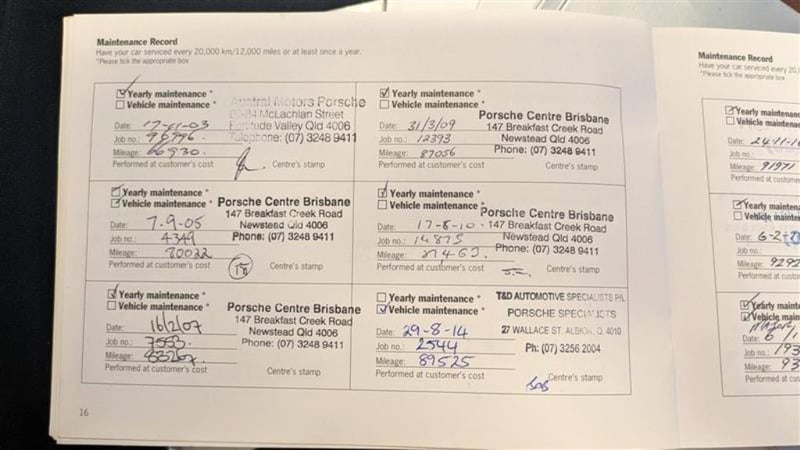 Maintenance Record
Have your car serviced every 20,000 km/12,000 miles or at least once a year.
*Please tick the appropriate box
Yearly maintenance *
Vehicle maintenance *
Austral Motors Porsche
McLachlan Street
Date: 17-11-03
Fortitude Valley Qld 4006
Job no.:
Telephone: (07) 3248 9411
Mileage: 66930.
Performed at customer's cost
Centre's stamp
Yearly maintenance *
Vehicle maintenance *
Porsche Centre Brisbane
147 Breakfast Creek Road
Date: 7.9.05
Newstead Qld 4006
Job no.: 4349
Phone: (07) 3248 9411
Mileage: 70022
Performed at customer's cost
Centre's stamp
Yearly maintenance *
Vehicle maintenance *
Porsche Centre Brisbane
147 Breakfast Creek Road
Date: 16/2/07
Newstead Qld 4006
Job no.:
Phone: (07) 3248 9411
Mileage:
Performed at customer's cost
Centre's stamp
16
Yearly maintenance *
Vehicle maintenance *
Porsche Centre Brisbane
147 Breakfast Creek Road
Date: 31/3/09
Newstead Qld 4006
Job no.: 12393
Phone: (07) 3248 9411
Mileage: 87056
Performed at customer's cost
Centre's stamp
Yearly maintenance *
Vehicle maintenance *
Porsche Centre Brisbane
147 Breakfast Creek Road
Date: 17-8-10
Newstead Qld 4006
Job no.: 14875
Phone: (07) 3248 9411
Mileage:
Performed at customer's cost
Centre's stamp
Yearly maintenance *
Vehicle maintenance *
T&D AUTOMOTIVE SPECIALISTS P/L
PORSCHE SPECIALISTS
Date: 29-8-14
27 WALLACE ST. ALBION, Q. 4010
Job no.: 2544
Ph: (07) 3256 2004
Mileage: 89525
Performed at customer's cost
Centre's stamp
Maintenance Record
Have your car serviced every 20,
*Please tick the appropriate box
Yearly maintenance
Vehicle maintenan
Date: 24-11-1
Job no.:
Mileage: 91971
Performed at custome
Yearly maintenan
Vehicle maintenan
Date: 6-2-
Job no.:
Mileage: 929
Performed at custom
Yearly maint
Vehicle main
Date: 6/1
Job no.: 193
Mileage: 93
Performed at custo